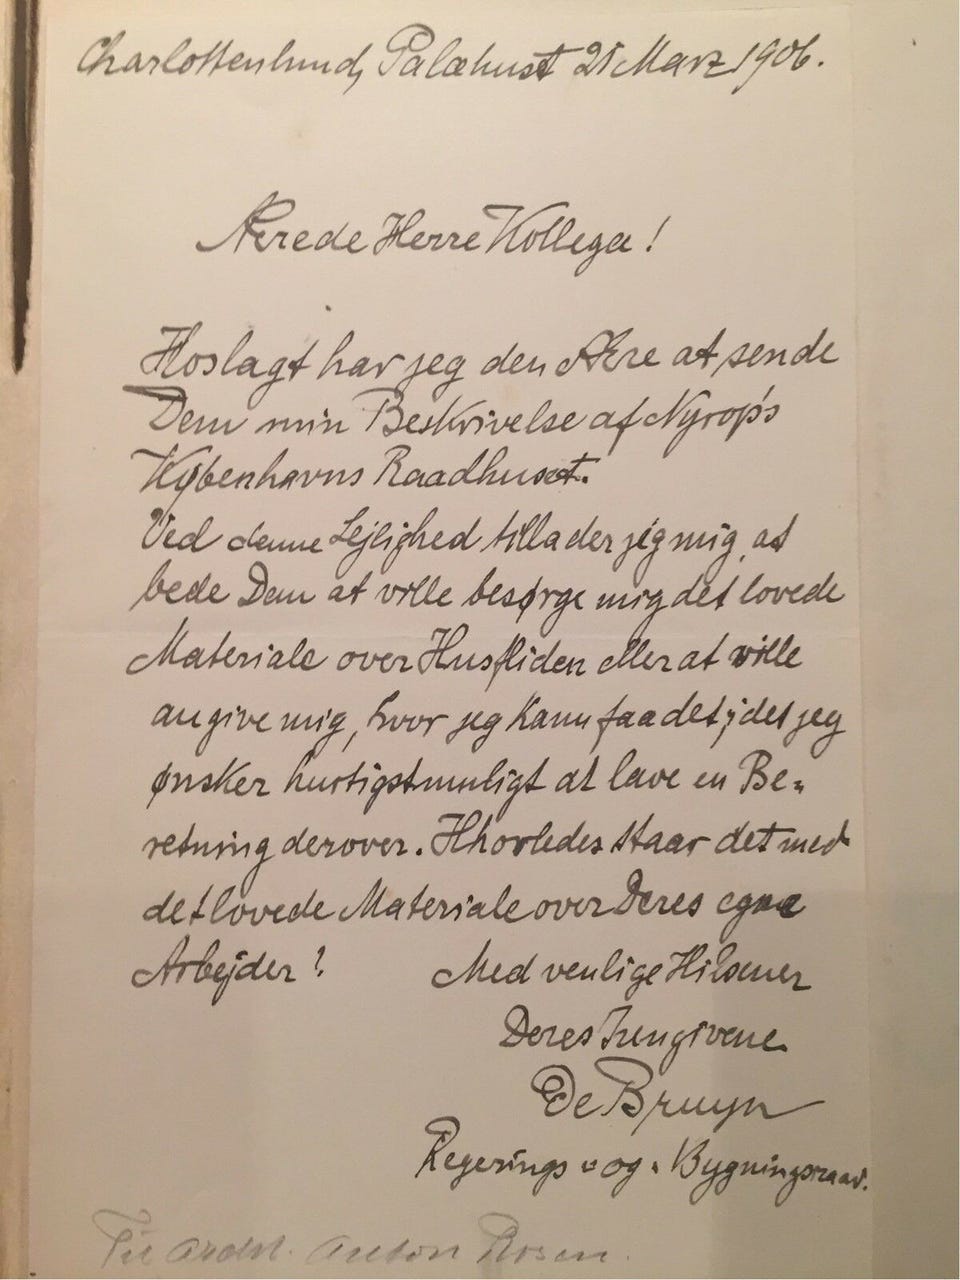 Charlottenlund, Palæhust 21 Marz 1906.
Ærede Herre Kollega!
Hoslagt har jeg den Ære at sende
Dem min Beskrivelse af Nyrop's
Københavns Raadhuset.
Ved denne Lejlighed tillader jeg mig, at
bede Dem at ville besørge mig det lovede
Materiale over Husfliden eller at ville
angive mig, hvor jeg kann faa det, idet jeg
ønsker hurtigstmuligt at lave en Be-
retning derover. Hhvorledes staar det med
det lovede Materiale over Deres egne
Arbejder?
Med venlige Hilsener
Deres hengivene
De Bruyn
Regerings- og - Bygningsraad.
Til Arkt. Anton Rosen.